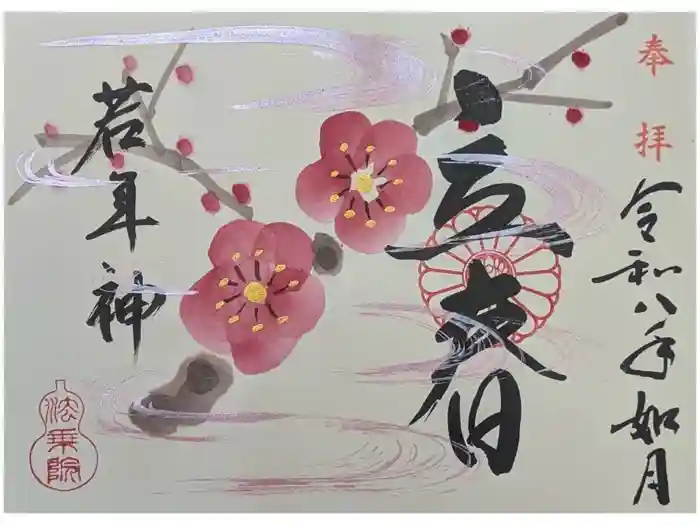 奉拝
令和八年如月
立春
若年神
法乗院